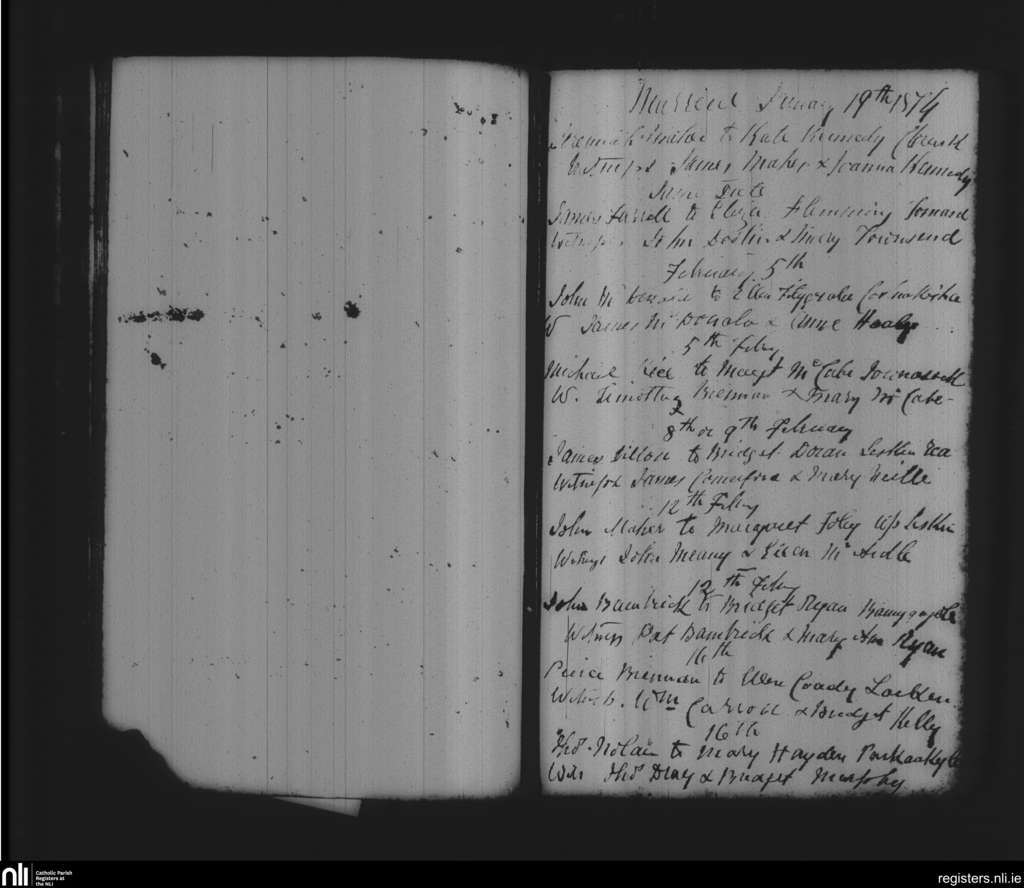 Married January 19th 1874
Jeremiah Maher to Kate Kennedy
Witness James Maher & Joanna Kennedy
Same Date
James Farrell to Eliza Flemming
Witness John Doolin & Mary Townsend
February 5th
John to Ellen Fitzgerald
W James McDonald & Anne Healy
5th Feby
Michael to Margt McCabe
W. Timothy Brennan & Mary McCabe
8th or 9th February
James Dillon to Bridget Doran
Witness James Comerford & Mary Neille
12th Feby
John Maher to Margaret Foley
Witness John Meany & Ellen McArdle
12th Feby
John Bambrick to Bridget Ryan
Witness Pat Bambrick & Mary Ann Ryan
16th
Pierce Brennan to Ellen Coady
Witness Wm Carroll & Bridget Kelly
16th
Thos Nolan to Mary Hayden
Wits Thos Dray & Bridget Murphy
nli
Catholic Parish
Registers at
the NLI
registers.nli.ie